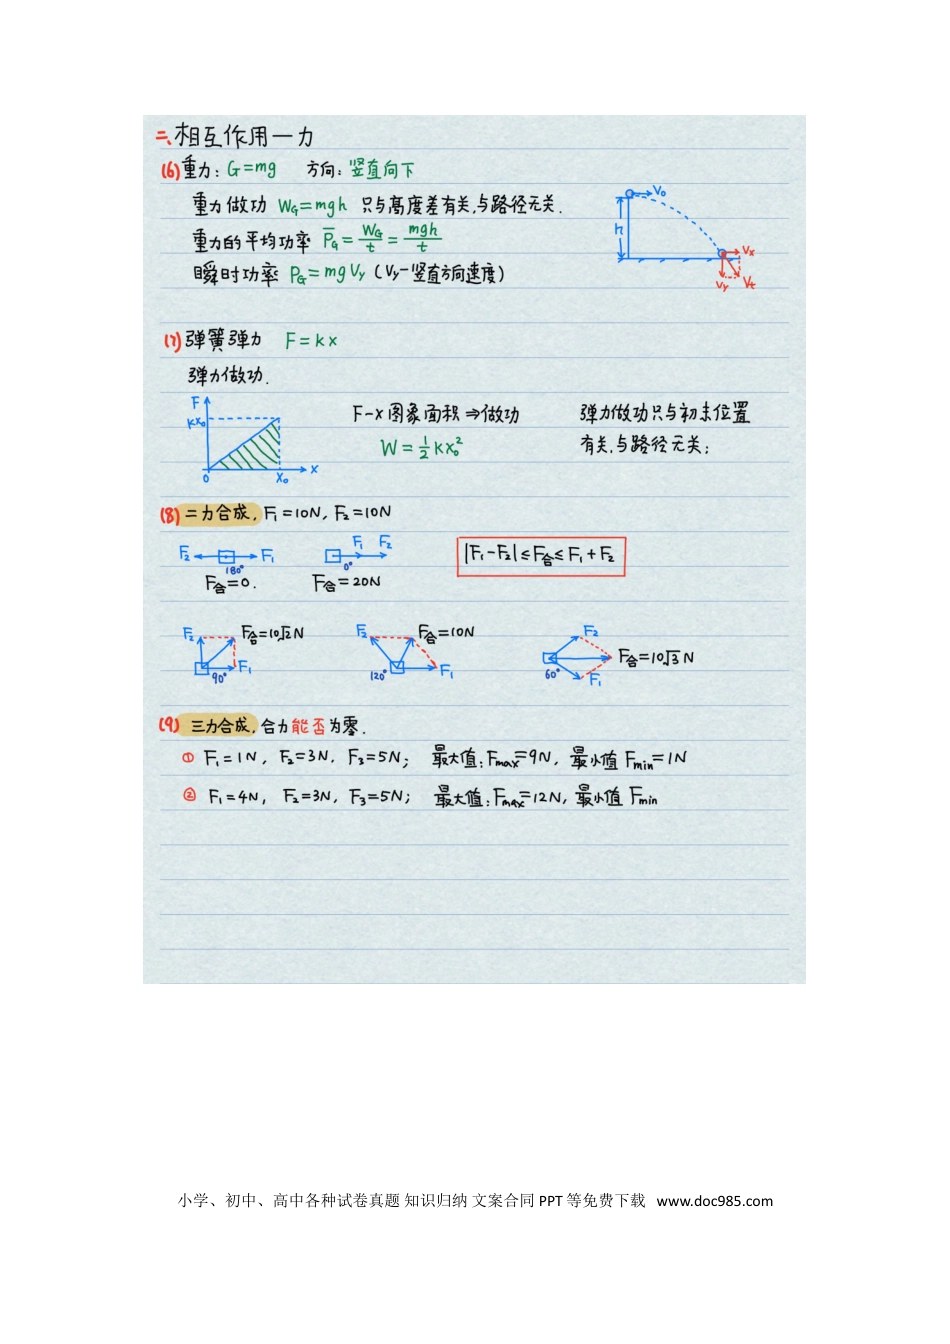 二、相互作用—力
(6)重力：G=mg 方向：竖直向下
重力做功 W_G=mgh 只与高度差有关,与路径无关.
重力的平均功率 P̅_G = W_G/t = mgh/t
瞬时功率 P_G=mgVy (Vy—竖直方向速度)
V₀
h
Vx
Vy Vt
(7)弹簧弹力 F=kx
弹力做功.
F
kx₀
0 x₀ x
F-x图象面积⇒做功 弹力做功只与初末位置
W=½kx₀² 有关,与路径无关;
(8)二力合成, F₁=10N, F₂=10N
F₂ F₁ 180° F₁ F₂ 0° |F₁-F₂|≤F合≤F₁+F₂
F合=0. F合=20N
F₂ F合=10√2N F₁ 90°
F₂ F合=10N F₁ 120°
F₂ F合=10√3N F₁ 60°
(9) 三力合成, 合力能否为零.
① F₁=1N, F₂=3N, F₃=5N; 最大值:Fmax=9N, 最小值 Fmin=1N
② F₁=4N, F₂=3N, F₃=5N; 最大值:Fmax=12N, 最小值 Fmin
小学、初中、高中各种试卷真题 知识归纳 文案合同 PPT 等免费下载 www.doc985.com